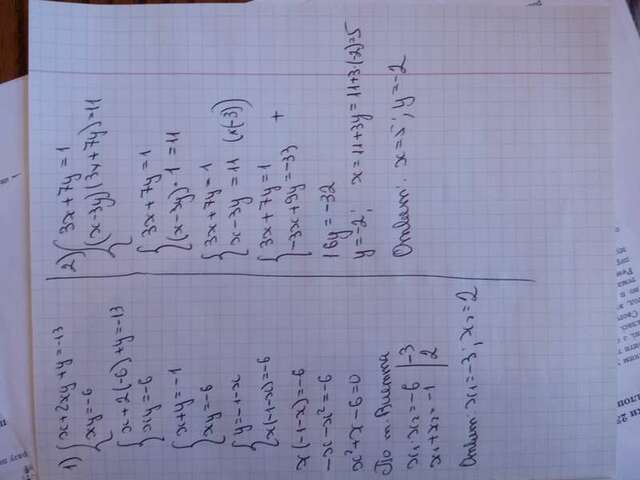 1) { x+2xy+y=-13
xy=-6
{ x+2(-6)+y=-13
xy=-6
{ x+y=-1
xy=-6
{ y=-1-x
x(-1-x)=-6
x(-1-x)=-6
-x-x²=-6
x²+x-6=0
По т. Виетта
x₁·x₂=-6 | -3
x₁+x₂=-1 | 2
Ответ: x₁=-3; x₂=2
2) { 3x+7y=1
(x-3y)(3x+7y)=11
{ 3x+7y=1
(x-3y)·1=11
{ 3x+7y=1
x-3y=11 (×(-3))
{ 3x+7y=1 +
-3x+9y=-33
16y=-32
y=-2; x=11+3y=11+3·(-2)=5
Ответ: x=5; y=-2